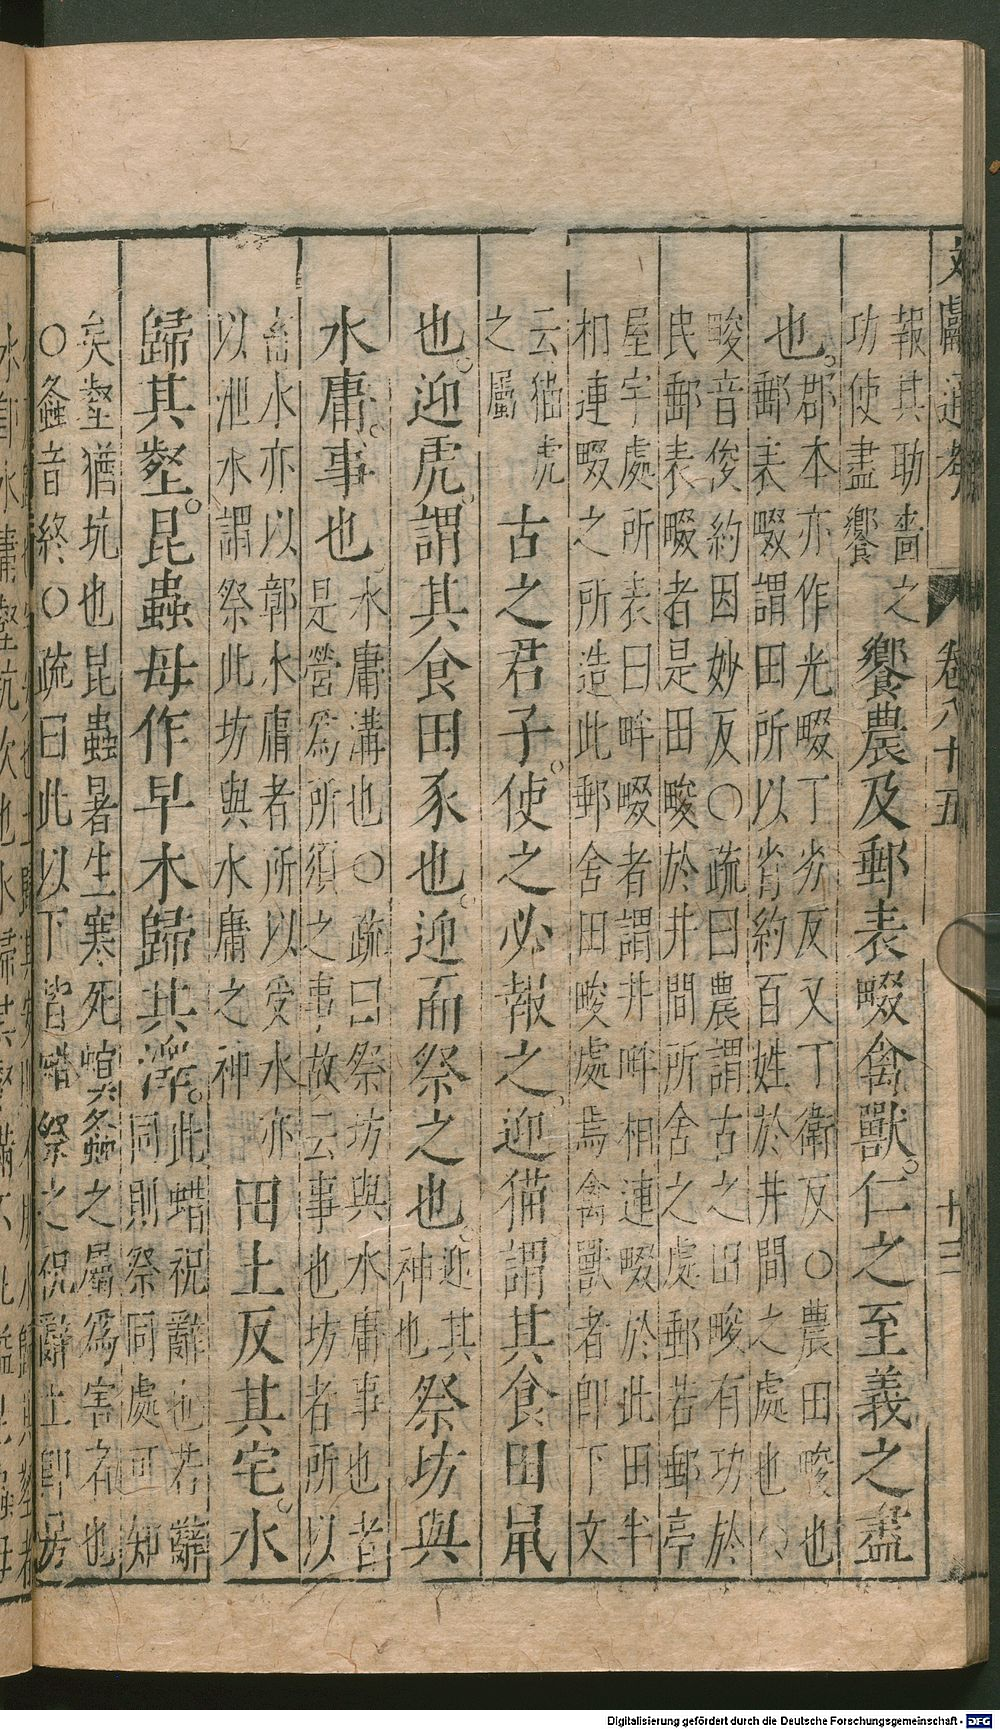 文獻通考 卷八十五 十三
報其助嗇之
功使盡饗
饗農及郵表畷禽獸。仁之至義之盡
也。
郡本亦作光畷丁劣反又丁衛反○農田畯也
郵表畷謂田所以督約百姓於井間之處也
畯音俊約因妙反○疏曰農謂古之田畯有功於
民郵表畷者是田畯於井間所舍之處郵若郵亭
屋宇處所表曰畔畷者謂井畔相連畷於此田半
相連畷之所造此郵舍田畯處焉禽獸者即下文
云猫虎
之屬
古之君子。使之必報之。迎猫謂其食田鼠
也。迎虎。謂其食田豕也。迎而祭之也。
迎其
神也
祭坊與
水庸。事也
水庸溝也○疏曰祭坊與水庸事也者
是營爲所須之事故云事也坊者所以
畜水亦以鄣水庸者所以受水亦
以泄水謂祭此坊與水庸之神
田土反其宅。水
歸其壑。昆蟲毋作早木歸其澤。
此蜡祝辭也若辭
同則祭同處可知
矣壑猶坑也昆蟲暑生寒死螟螽之屬爲害者也
○螽音終○疏曰此以下皆蜡祭之祝辭土即坊
Digitalisierung gefördert durch die Deutsche Forschungsgemeinschaft - DFG